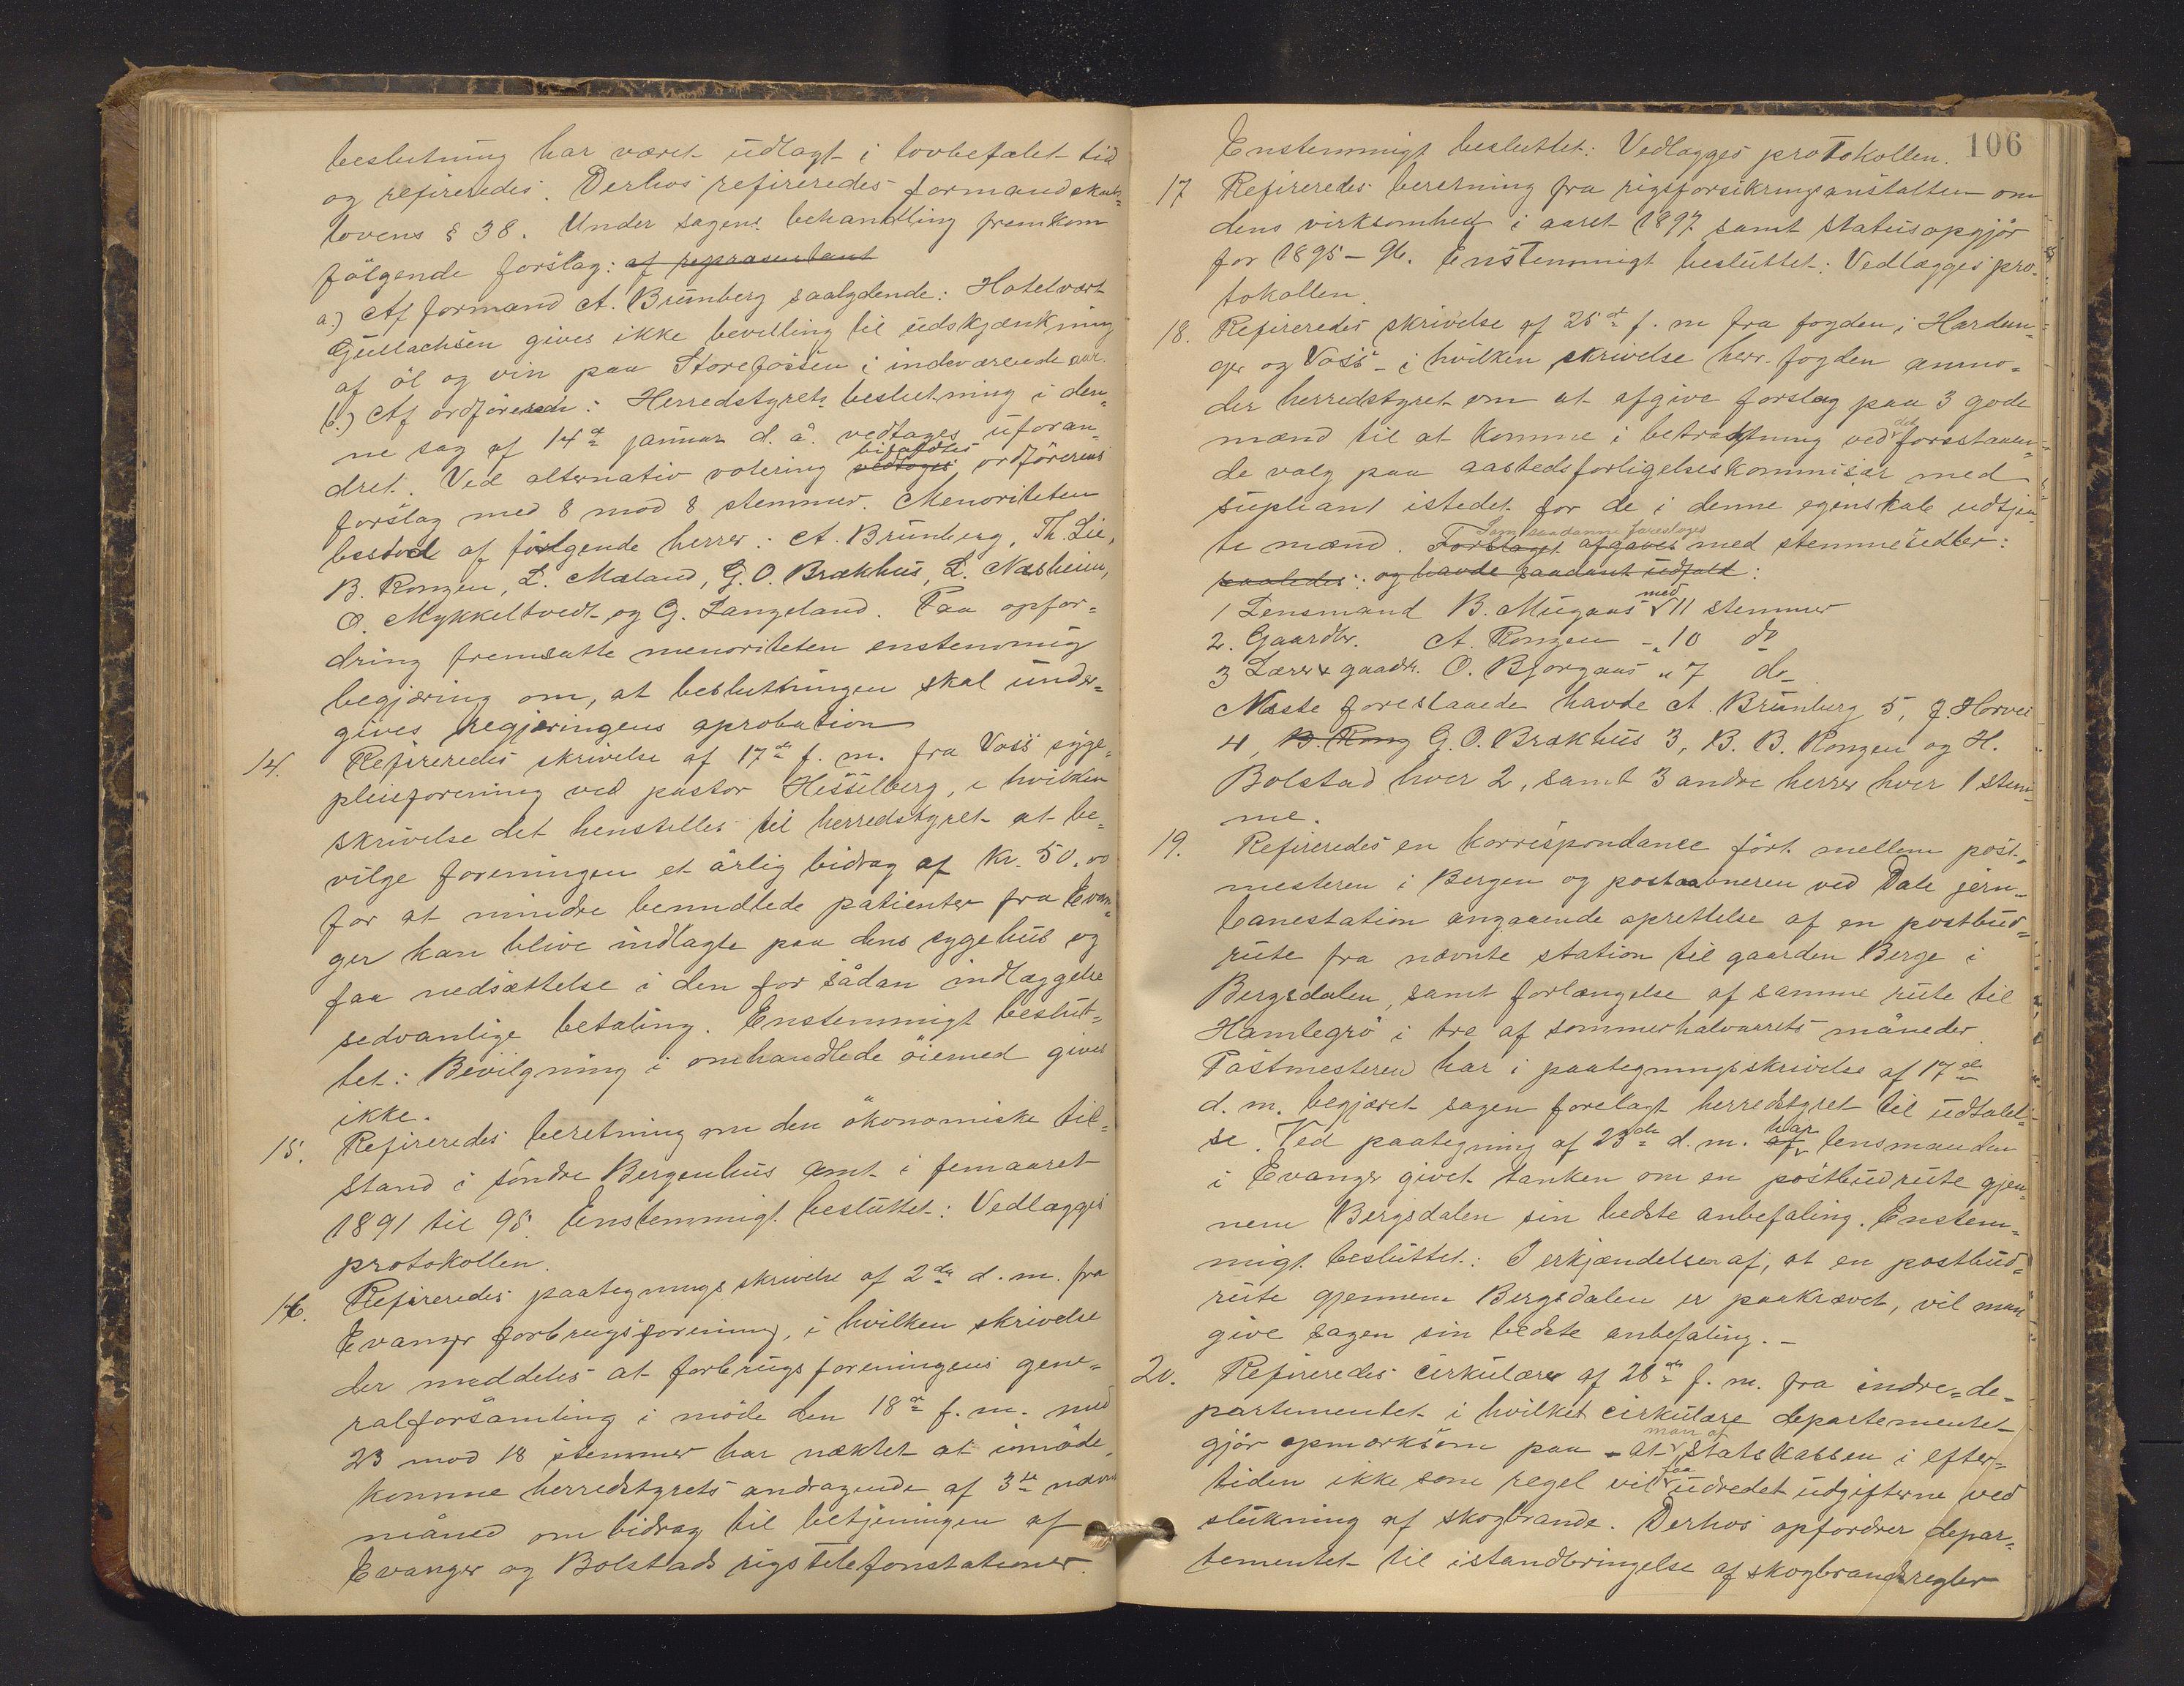 beslutning har været udlagt i lovbefalet tid
og refireredes. Derhos refireredes formandskabs=
lovens § 38. Under sagens behandling fremkom
følgende forslag: af repræsentant
a.) Af formand A. Brunberg saalydende: Hotelvært
Gullachsen gives ikke bevilling til udskjænkning
af öl og vin paa Storefossen i indeværende aar.
b.) Af ordföreren: Herredstyrets beslutning i den=
ne sag af 14de januar d. å. vedtages uforan=
dret. Ved alternativ votering vedtoges bifaldtes ordförerens
forslag med 8 mod 8 stemmer. Menoriteten
bestod af følgende herrer: A. Brunberg, Th. Lie,
B. Rongen, L. Mæland, G. O. Brækhus, L. Næsheim,
O. Mykkeltvedt og G. Langeland. Paa opfor=
dring fremsatte menoriteten enstemmig
begjæring om, at beslutningen skal under=
gives regjeringens aprobation
14. Refireredes skrivelse af 17de f. m. fra Voss syge=
pleieforening ved pastor Hesselberg, i hvilken
skrivelse det henstilles til herredstyret at be=
vilge foreningen et årlig bidrag af Kr. 50.00
for at mindre bemidlede patienter fra Evan=
ger kan blive indlagte paa dens sygehus og
faa nedsættelse i den for sådan indlæggelse
sedvanlige betaling. Enstemmigt beslut=
tet: Bevilgning i omhandlede öiemed gives
ikke.
15. Refireredes beretning om den ökonomiske til=
stand i söndre Bergenhus amt i femaaret
1891 til 95. Enstemmigt besluttet: Vedlægges
protokollen.
16. Refireredes paategningsskrivelse af 2den d. m. fra
Evanger forbrugsforening, i hvilken skrivelse
der meddeles at forbrugsforeningens gene=
ralforsamling i möde den 18de f. m. med
23 mod 18 stemmer har næktet at imöde=
komme herredstyrets andragende af 3de nævnte
måned om bidrag til betjeningen af
Evanger og Bolstads rigstelefonstationer.
106
Enstemmigt besluttet: Vedlægges protokollen.
17 Refireredes beretning fra rigsforsikringsanstalten om
dens virksomhed i aaret 1897 samt statusopgjör
for 1895–96. Enstemmigt besluttet: Vedlægges pro=
tokollen.
18. Refireredes skrivelse af 25de f. m fra fogden i Hardan=
ger og Voss – i hvilken skrivelse herr fogden anmo=
der herredstyret om at afgive forslag paa 3 gode
mænd til at komme i betraktning ved det forestaaen=
de valg paa aastedsforligelseskommisær med
supleant istedet for de i denne egenskab udtjen=
te mænd. Forslaget afgaves Som saadanne foresloges med stemmesedler:
saaledes: og havde saadant udfald:
1 Lensmand B. Mugaas med 11 stemmer
2. Gaardbr. A. Rongen – „ 10 do
3 Lærer & gaardbr. O. Bjorgaas „ 7 do
Næste foreslaaede havde A. Brunberg 5, J. Horvei
4, B. Rong G. O. Brækhus 3, B. B. Rongen og H.
Bolstad hver 2, samt 3 andre herrer hver 1 stem=
me.
19. Refireredes en korrespondance fört mellem post=
mesteren i Bergen og postaabneren ved Dale jern=
banestation angaaende oprettelse af en postbud=
rute fra nævnte station til gaarden Berge i
Bergsdalen, samt forlængelse af samme rute til
Hamlegrö i tre af sommerhalvaarets måneder.
Postmesteren har i paategningsskrivelse af 17de
d. m. begjæret sagen forelagt herredstyret til udtalel=
se. Ved paategning af 23de d. m. af har lensmanden
i Evanger givet tanken om en postbudrute gjen=
nem Bergsdalen sin bedste anbefaling. Enstem=
migt besluttet: I erkjændelsen af, at en postbud=
rute gjennem Bergsdalen er paakrævet, vil man
give sagen sin bedste anbefaling. –
20. Refireredes cirkulære af 28de f. m. fra indre=de=
partementet i hvilket cirkulære departementet
gjör opmærksom paa – at man af statskassen i efter=
tiden ikke som regel vil faa udredet udgifterne ved
slukning af skogbrande. Derhos opfordrer depar=
tementet til istandbringelse af skogbrandsregler